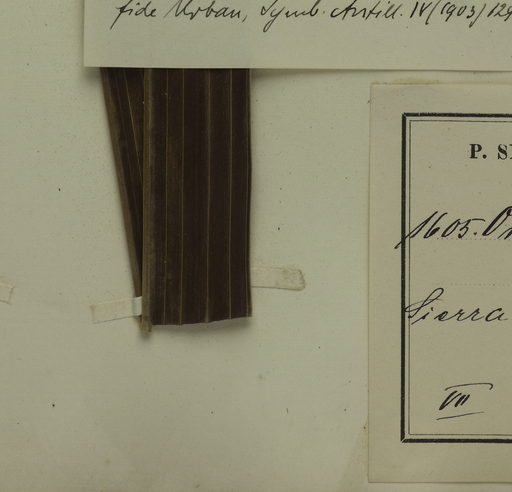 fide Urban, Symb. Antill. IV (1903) 129
P. S
1605. Or
Sierra
VII